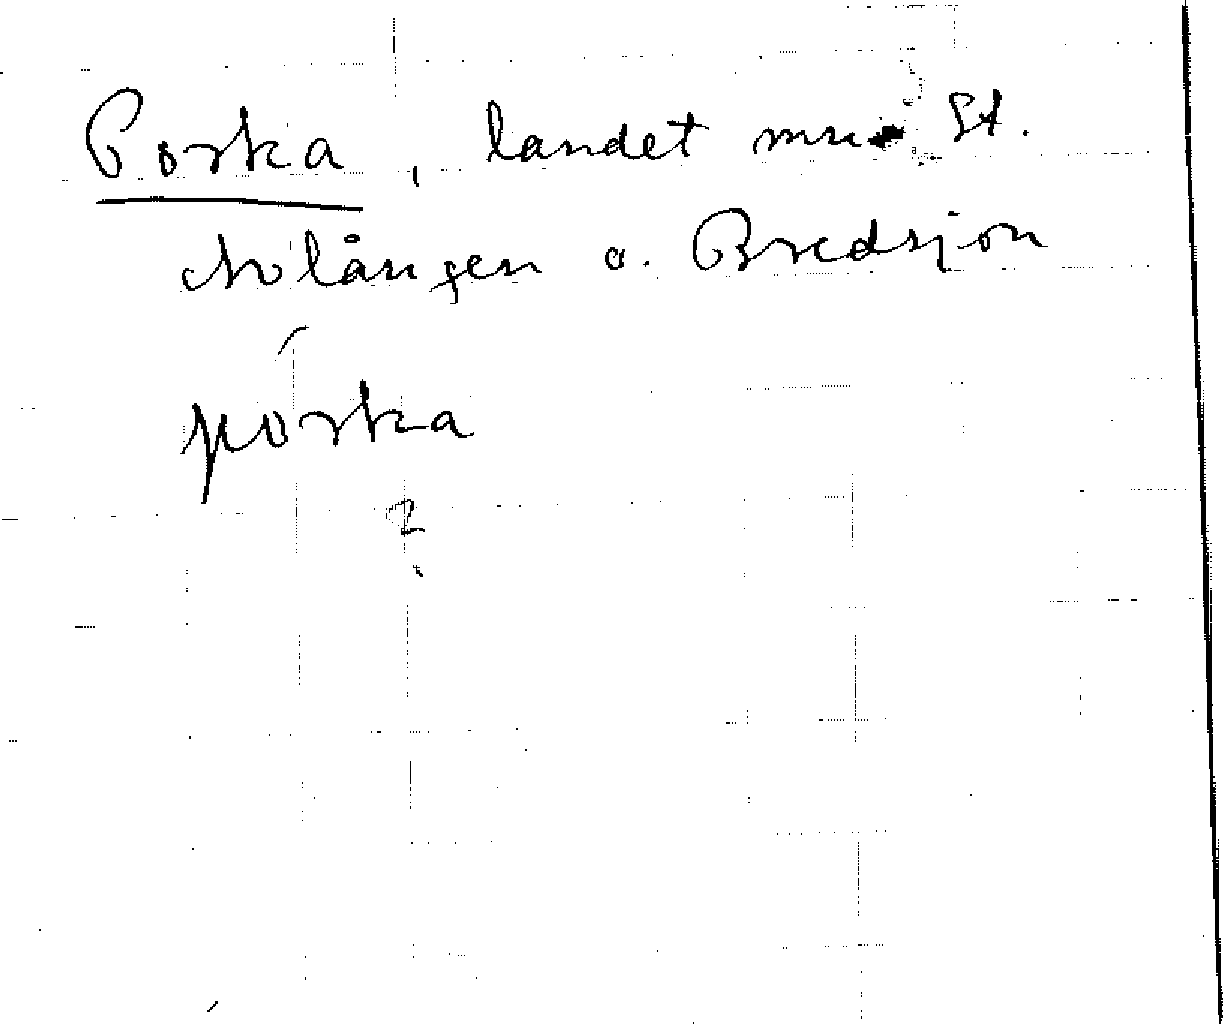 Porka, landet m St.
Nolången o. Bredsjön
porka
2